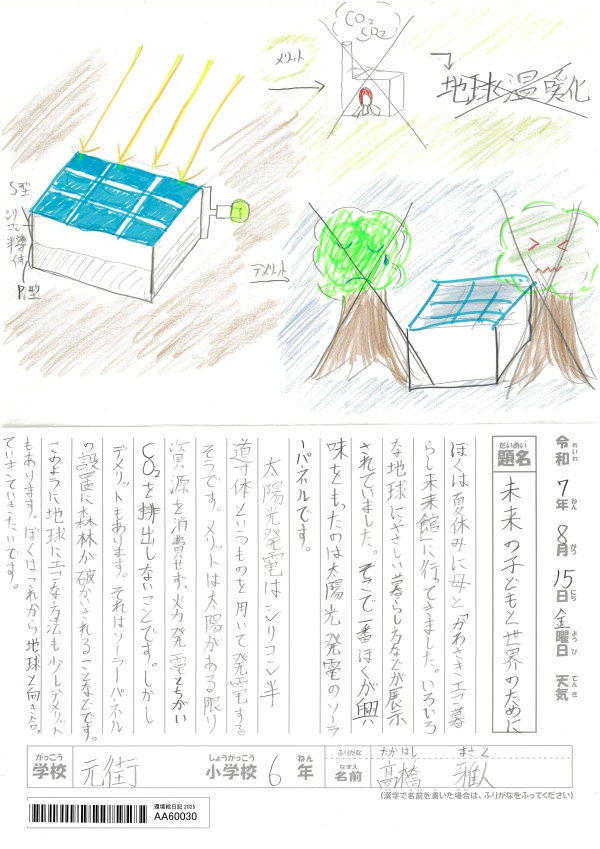 CO₂
CO₂
メリット
地球温暖化
S型
シリコン半導体
P型
デメリット
令和7年8月15日金曜日 天気
れいわ ねん がつ にち ようび てんき
だいめい
題名
未来の子どもと世界のために
ぼくは夏休みに母と「かわさきエコ暮
らし未来館」に行ってきました。いろいろ
な地球にやさしい暮らし方などが展示
されていました。そこで一番ぼくが興
味をもったのは太陽光発電のソーラ
ーパネルです。
太陽光発電はシリコン半
導体というものを用いて発電する。
そうです。メリットは太陽がある限り
資源を消費せず、火力発電とちがい
CO₂を排出しないことです。しかし
デメリットもあります。それはソーラーパネル
の設置に森林が破かいされることなどです。
このように地球にエコな方法も少しデメリット
もあります。ぼくはこれから地球と向き合っ
ていきていきたいです。
がっこう
学校
元街
しょうがっこう
小学校
6
ねん
年
ふりがな
たかはし まさと
なまえ
名前
高橋 雅人
(漢字で名前を書いた場合は、ふりがなをふってください)
環境絵日記 2025
AA60030